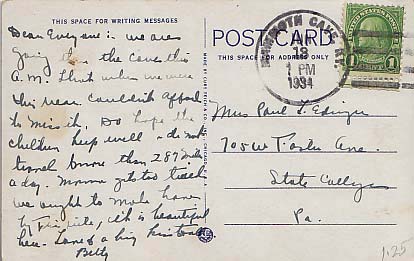 THIS SPACE FOR WRITING MESSAGES
Dear Everyone :- We are
going thru the caves this
A.M. Think when we were
this near couldn't afford
to miss it. Do hope the
children keep well - do not
travel more than 287 miles
a day. Mamma gets too tired
we ought to make home
by Fri nite, it is beautiful
here. Love & a big kiss to all
Betty
POST CARD
THIS SPACE FOR ADDRESS
MAMMOTH CAVE, KY.
18
1 PM
1934
1 1
Mrs Paul L. Edinger
705 W Foster Ave.
State College
Pa.
1.25